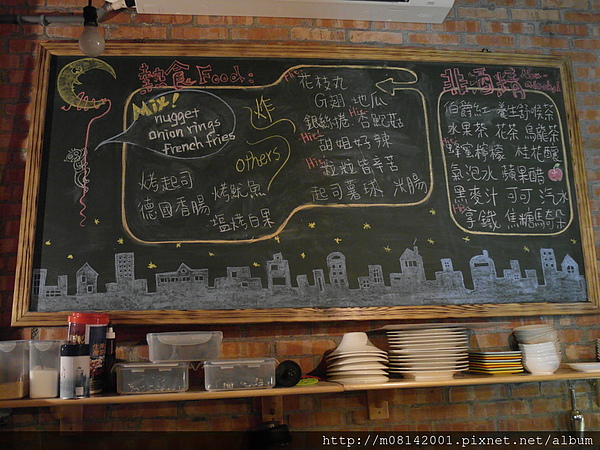 熱食 Food:
Mix!
nugget
onion rings
french fries
炸
others
烤起司 烤魷魚
德國香腸
塩烤白果
Hi 花枝丸
G翅 地瓜
銀絲捲 Hi 杏鮑菇
Hi 甜姐好辣
Hi 粒粒皆辛苦
起司薯球 米腸
非酒精 Non-alcohol
伯爵紅 養生舒喉茶
水果茶 花茶 烏龍茶
蜂蜜檸檬 桂花釀
氣泡水 蘋果醋
黑麥汁 可可 汽水
拿鐵 焦糖瑪奇朵
http://m08142001.pixnet.net/album